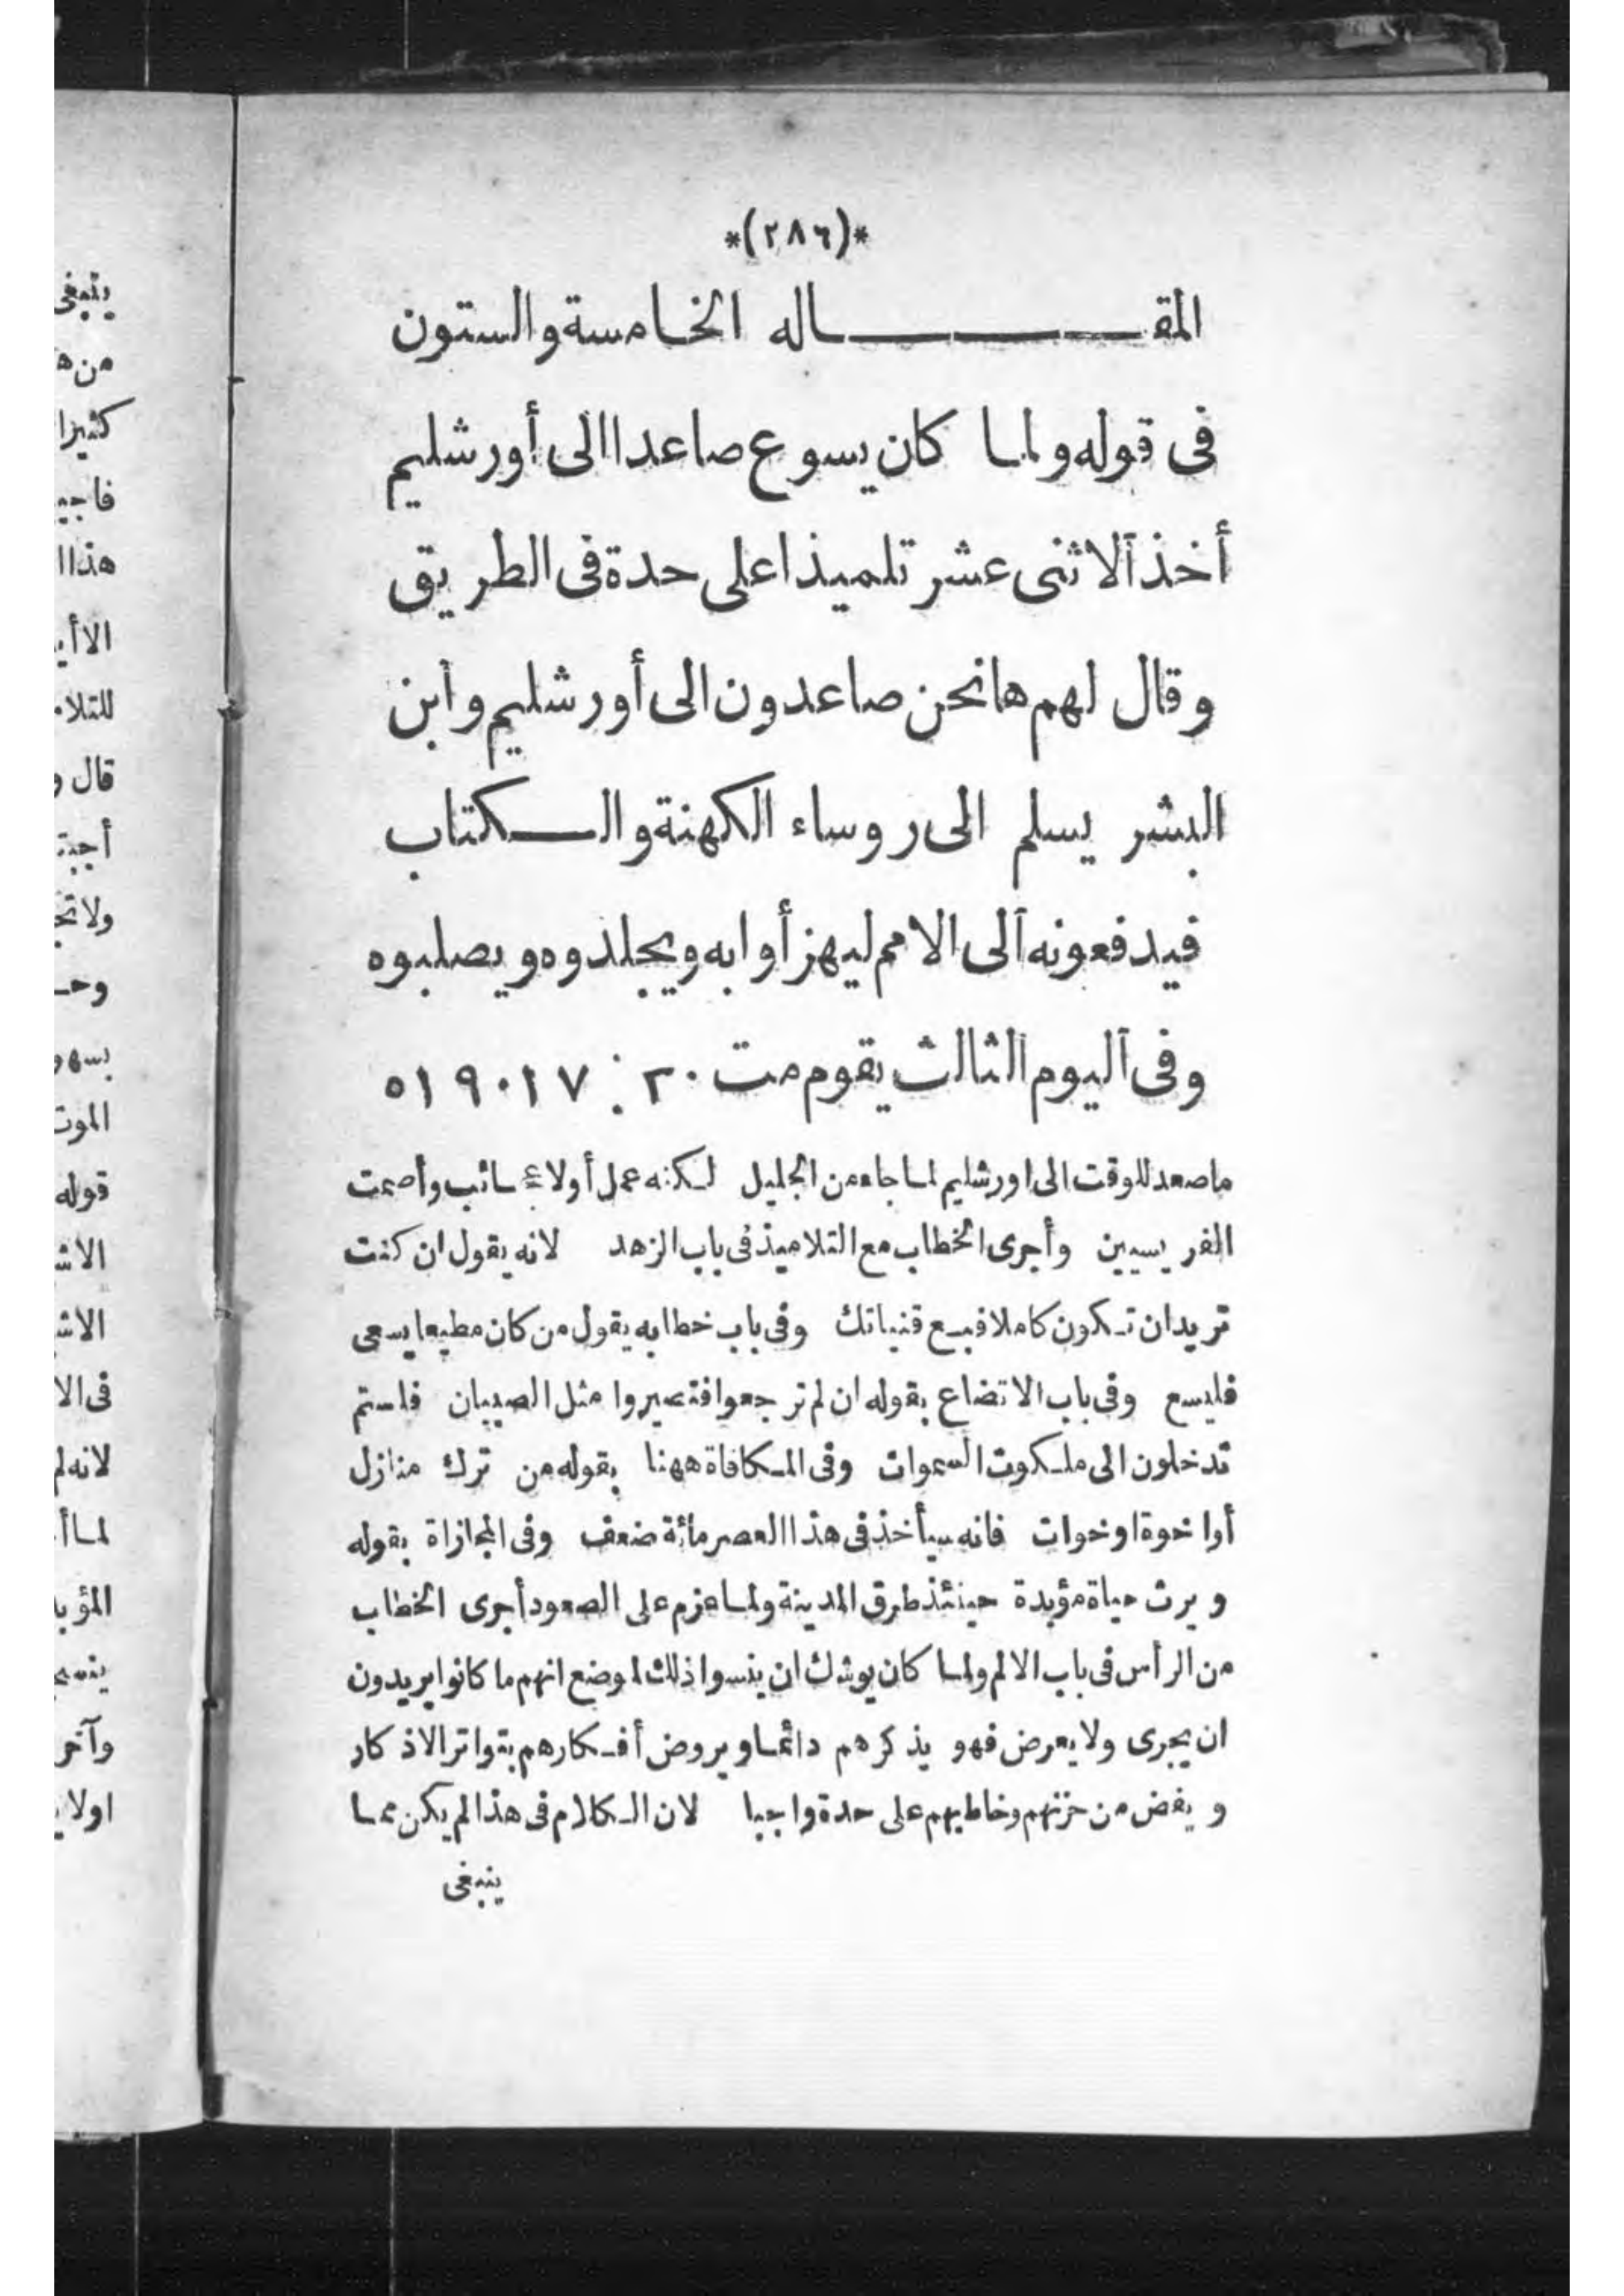 *(٢٨٦)*
المقـــــــاله الخامسة والستون
فى قوله ولما كان يسوع صاعدا الى أورشليم
أخذ الاثنى عشر تلميذا على حدة فى الطريق
وقال لهم ها نحن صاعدون الى أورشليم وابن
البشر يسلم الى روساء الكهنة والـــكتاب
فيدفعونه الى الامم ليهزأوا به ويجلدوه ويصلبوه
وفى اليوم الثالث يقوم مت ٢٠ : ١٧ ٠ ١٩ ٥١
ما صعد للوقت الى اورشليم لما جاء من الجليل لكنه عمل أولا عجائب وأصمت
الفريسيين وأجرى الخطاب مع التلاميذ فى باب الزهد لانه يقول ان كنت
تريد ان تكون كاملا فبع قنياتك وفى باب خطابه يقول من كان مطيعا يسعى
فليسع وفى باب الاتضاع بقوله ان لم ترجعوا فتصيروا مثل الصبيان فلستم
تدخلون الى ملكوت السموات وفى المكافاة ههنا بقوله من ترك منازل
أو اخوة او خوات فانه سيأخذ فى هذا العصر مائة ضعف وفى المجازاة بقوله
ويرث حياة مؤبدة حينئذ طرق المدينة ولما عزم على الصعود أجرى الخطاب
من الرأس فى باب الالم ولما كان يوشك ان ينسوا ذلك لموضع انهم ما كانوا يريدون
ان يجرى ولا يعرض فهو يذكرهم دائما ويروض أفكارهم بتواتر الاذكار
ويغض من حزنهم وخاطبهم على حدة واجبا لان الكلام فى هذا لم يكن مما
ينبغى
ينبغى
كثيرا
قال و
قوله
وآخر